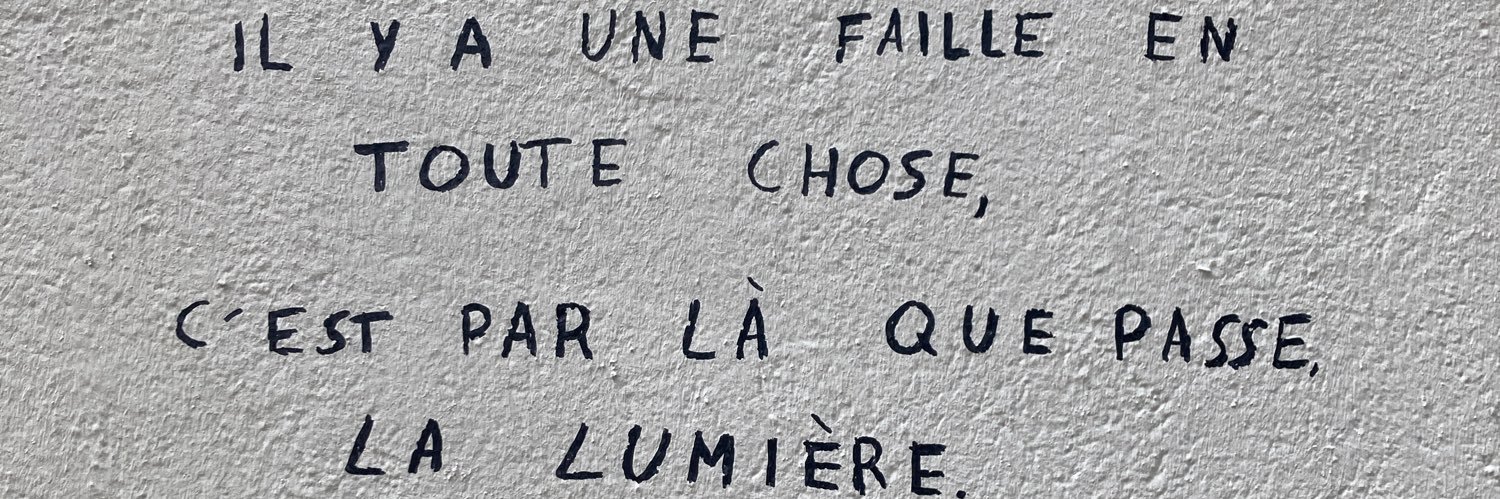 IL Y A UNE FAILLE EN
TOUTE CHOSE,
C'EST PAR LÀ QUE PASSE,
LA LUMIÈRE.